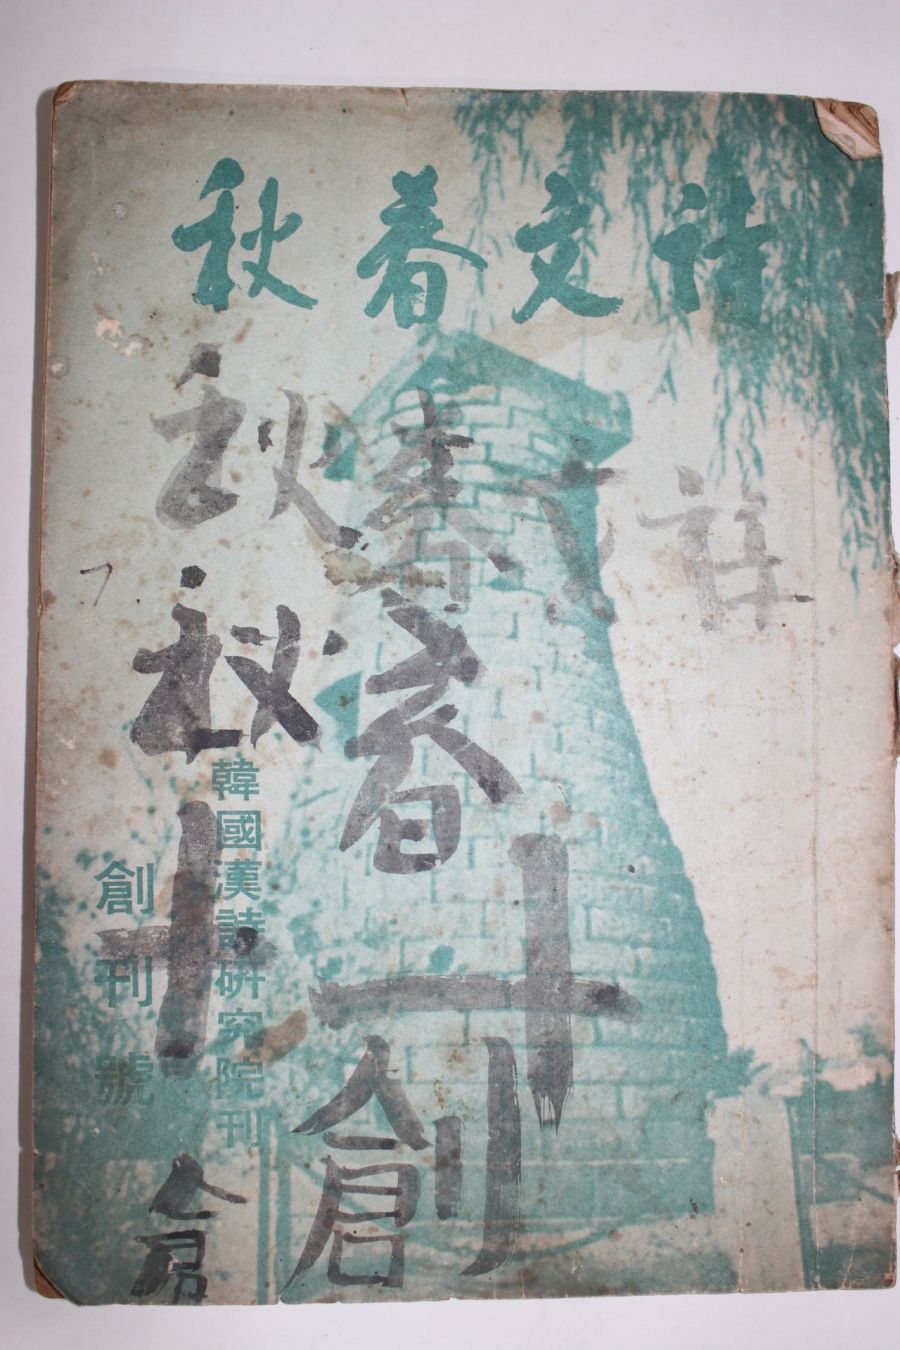 詩文春秋
秋
春秋
韓國漢詩硏究院刊
創刊號
十
十
創
倉